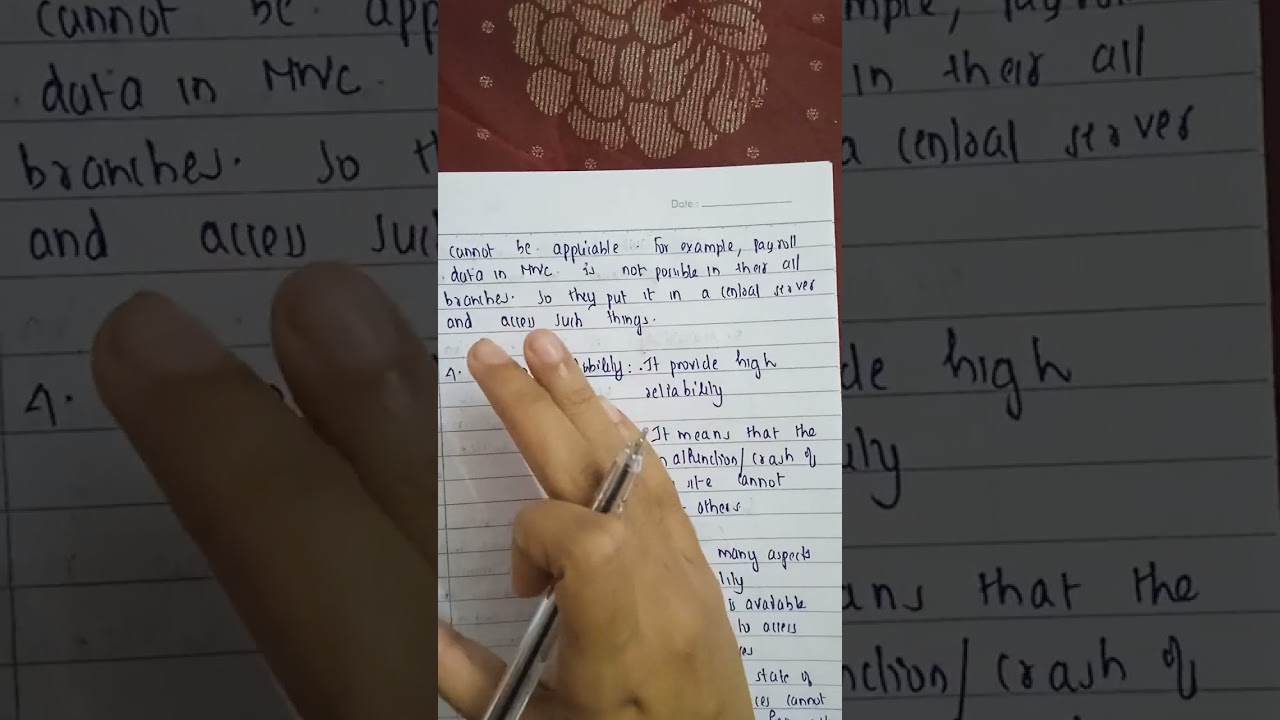 Date :
cannot be applicable. For example, payroll
data in MNC is not possible in their all
branches. So they put it in a central server
and access such things.
4. It provide high
reliability
It means that the
malfunction/crash of
site cannot
others
many aspects
is available
to access
state of
cannot